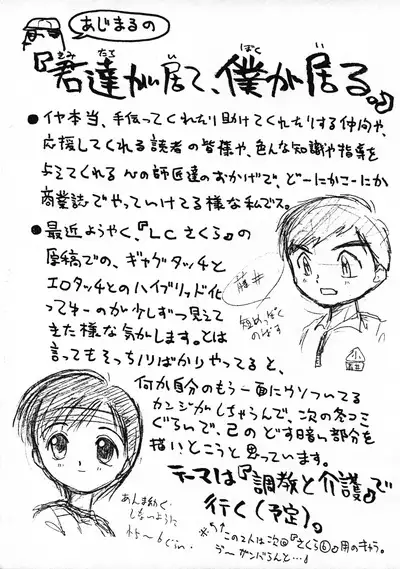 あじまるの
『君達が居て、僕が居る。』
きみ たち い ぼく い
●イヤ本当、手伝ってくれたり助けてくれたりする仲間や、
応援してくれる読者の皆様や、色んな知識や指導を
与えてくれる心の師匠達のおかげで、どーにかこーにか
商業誌でやっていけてる様な私でス。
●最近ようやく、『LCさくら』の
原稿での、ギャグタッチと
エロタッチとのハイブリッド化
ってゆーのが少しずつ見えて
きた様な気がします。とは
言ってもそっちバリばかりやってると、
何か自分のもう一面にウソついてる
カンジがしちゃうんで、次の冬コミ
ぐらいで、己のどす暗い部分を
描いとこうと思っています。
テーマは『調教と介護』で
行く(予定)。
藤井
短めっぽく
のばす
小
あんま幼く
しないように
※↑この2人は次回『さくら⑥』用のキャラ。
うーガンバるんと…